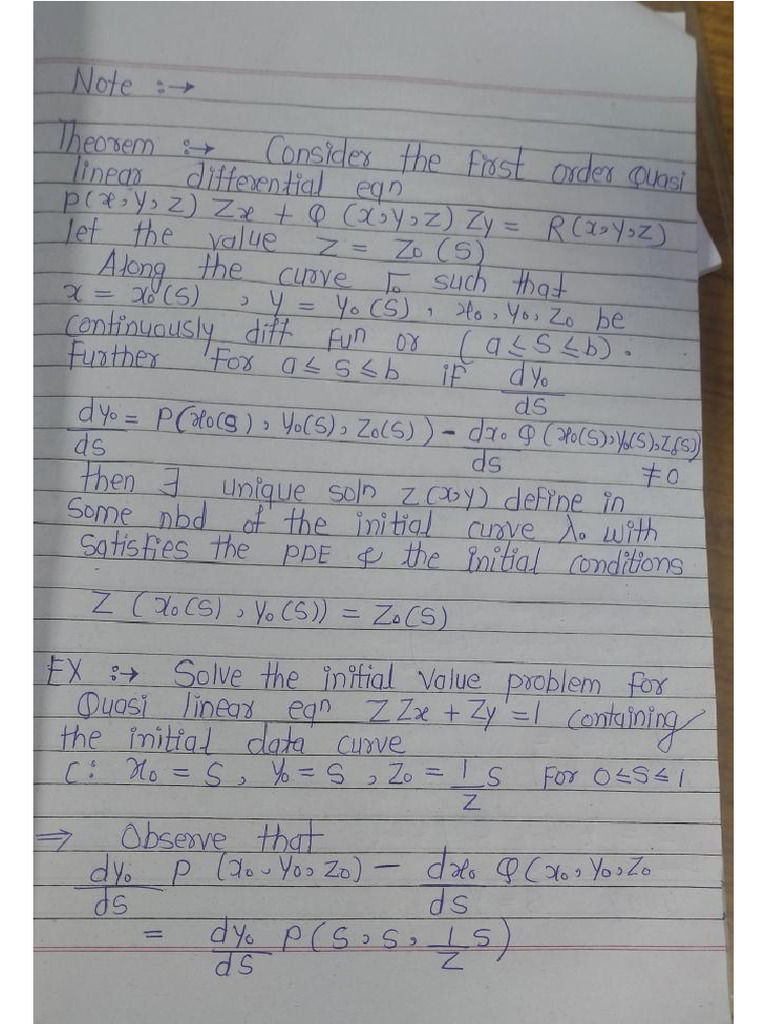 Note :→
Theorem :→ Consider the First order Quasi
linear differential eqn
P(x,y,z) Zx + Q (x,y,z) Zy = R(x,y,z)
let the value Z = Z₀ (S)
Along the curve Γ₀ such that
x = x₀(S) , y = y₀(S), x₀, y₀, z₀ be
continuously diff fun or (a ≤ S ≤ b).
Further For a ≤ S ≤ b if dy₀/ds
dy₀/ds = P(x₀(S), y₀(S), z₀(S)) - dx₀/ds Q(x₀(S), y₀(S), z₀(S)) ≠ 0
then ∃ unique soln z(x,y) define in
Some nbd of the initial curve λ₀ with
Satisfies the PDE & the initial conditions
Z (x₀(S), y₀(S)) = Z₀(S)
EX :→ Solve the initial value problem for
Quasi linear eqn Z Zx + Zy = 1 containing
the initial data curve
C: x₀ = S, y₀ = S, Z₀ = 1/2 S For 0 ≤ S ≤ 1
⇒ Observe that
dy₀/ds P (x₀, y₀, z₀) - dx₀/ds Q(x₀, y₀, z₀
= dy₀/ds P(S, S, 1/2 S)